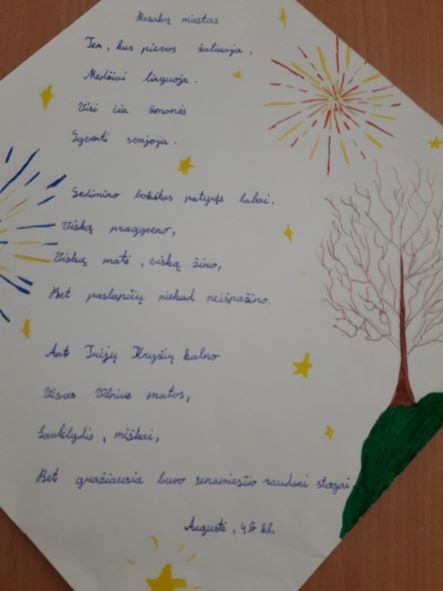 Pasakų miestas
Ten, kur pievos žaliuoja,
Medžiai linguoja.
Visi čia žmonės
Gyventi svajoja.
Gedimino bokštas patyręs labai.
Viską pragyveno,
Viską matė, viską žino,
Bet paslapčių niekad neišpažino.
Ant Trijų Kryžių kalno
Visas Vilnius matos,
Saulėlydis, miškai,
Bet gražiausia buvo senamiesčio raudoni stogai.
Augustė, 4b kl.